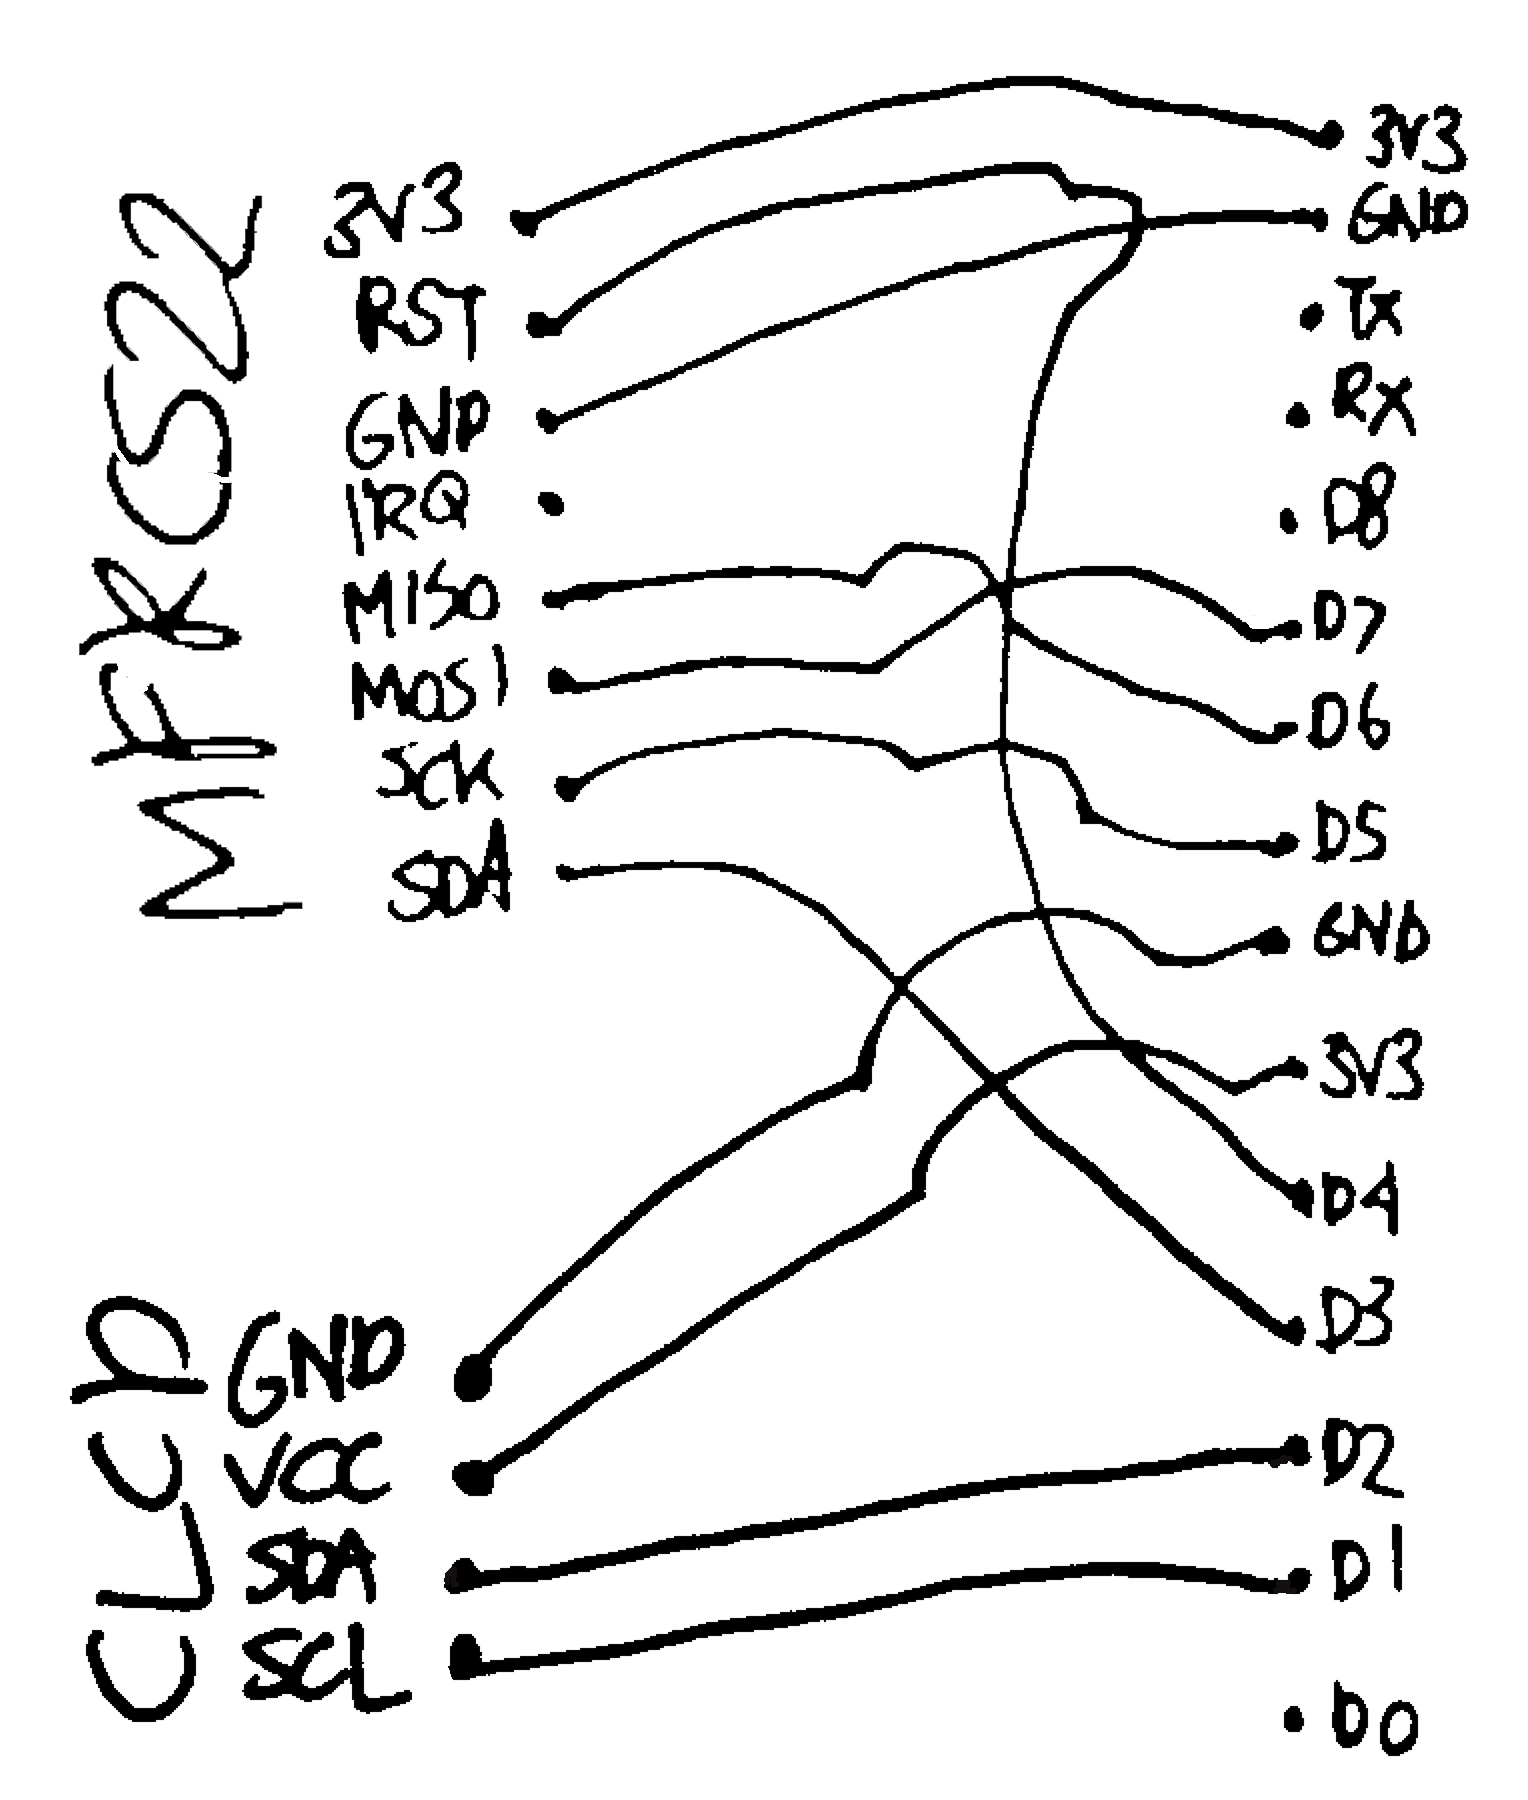 MFRC522
3V3
RST
GND
IRQ
MISO
MOSI
SCK
SDA
CLCD
GND
VCC
SDA
SCL
3V3
GND
Tx
Rx
D8
D7
D6
D5
GND
3V3
D4
D3
D2
D1
D0